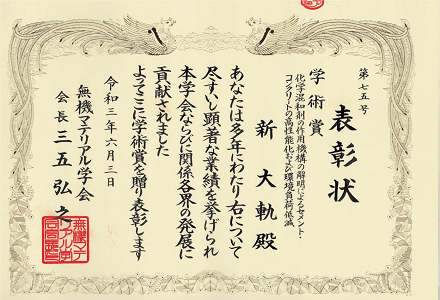 第七五号
表彰状
学術賞
化学混和剤の作用機構の解明によるセメント・
コンクリートの高性能化および環境負荷低減
新大軌殿
あなたは多年にわたり右について
尽すいし顕著な業績を挙げられ
本学会ならびに関係各界の発展に
貢献されました
よってここに学術賞を贈り表彰します
令和三年六月三日
無機マテリアル学会
会長 三五弘之